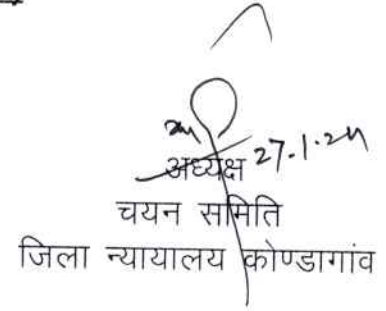 27.1.24
अध्यक्ष
चयन समिति
जिला न्यायालय कोण्डागांव